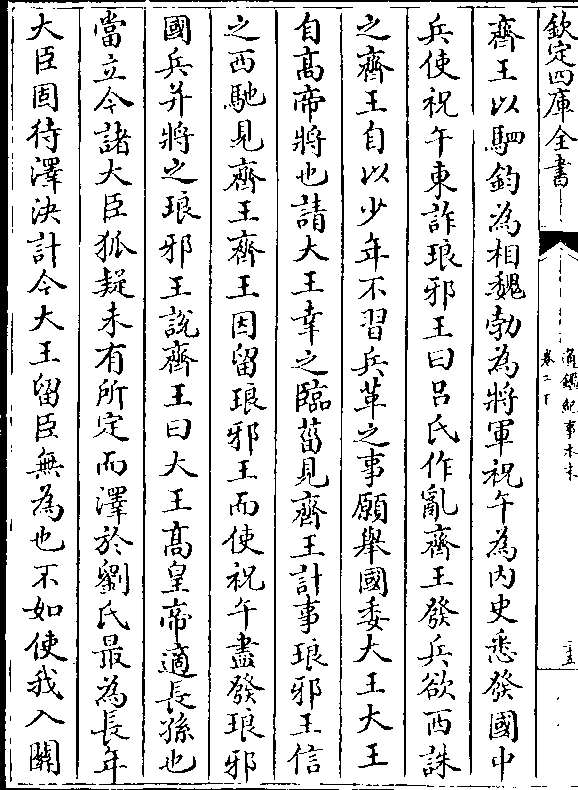 欽定四庫全書
通鑑紀事本末
卷二下
齊王以駟鈞為相魏勃為將軍祝午為内史悉發國中
兵使祝午東詐琅邪王曰呂氏作亂齊王發兵欲西誅
之齊王自以少年不習兵革之事願舉國委大王大王
自髙帝將也請大王幸之臨菑見齊王計事琅邪王信
之西馳見齊王齊王因留琅邪王而使祝午盡發琅邪
國兵并將之琅邪王說齊王曰大王髙皇帝適長孫也
當立今諸大臣狐疑未有所定而澤於劉氏最為長年
大臣固待澤決計今大王留臣無為也不如使我入關